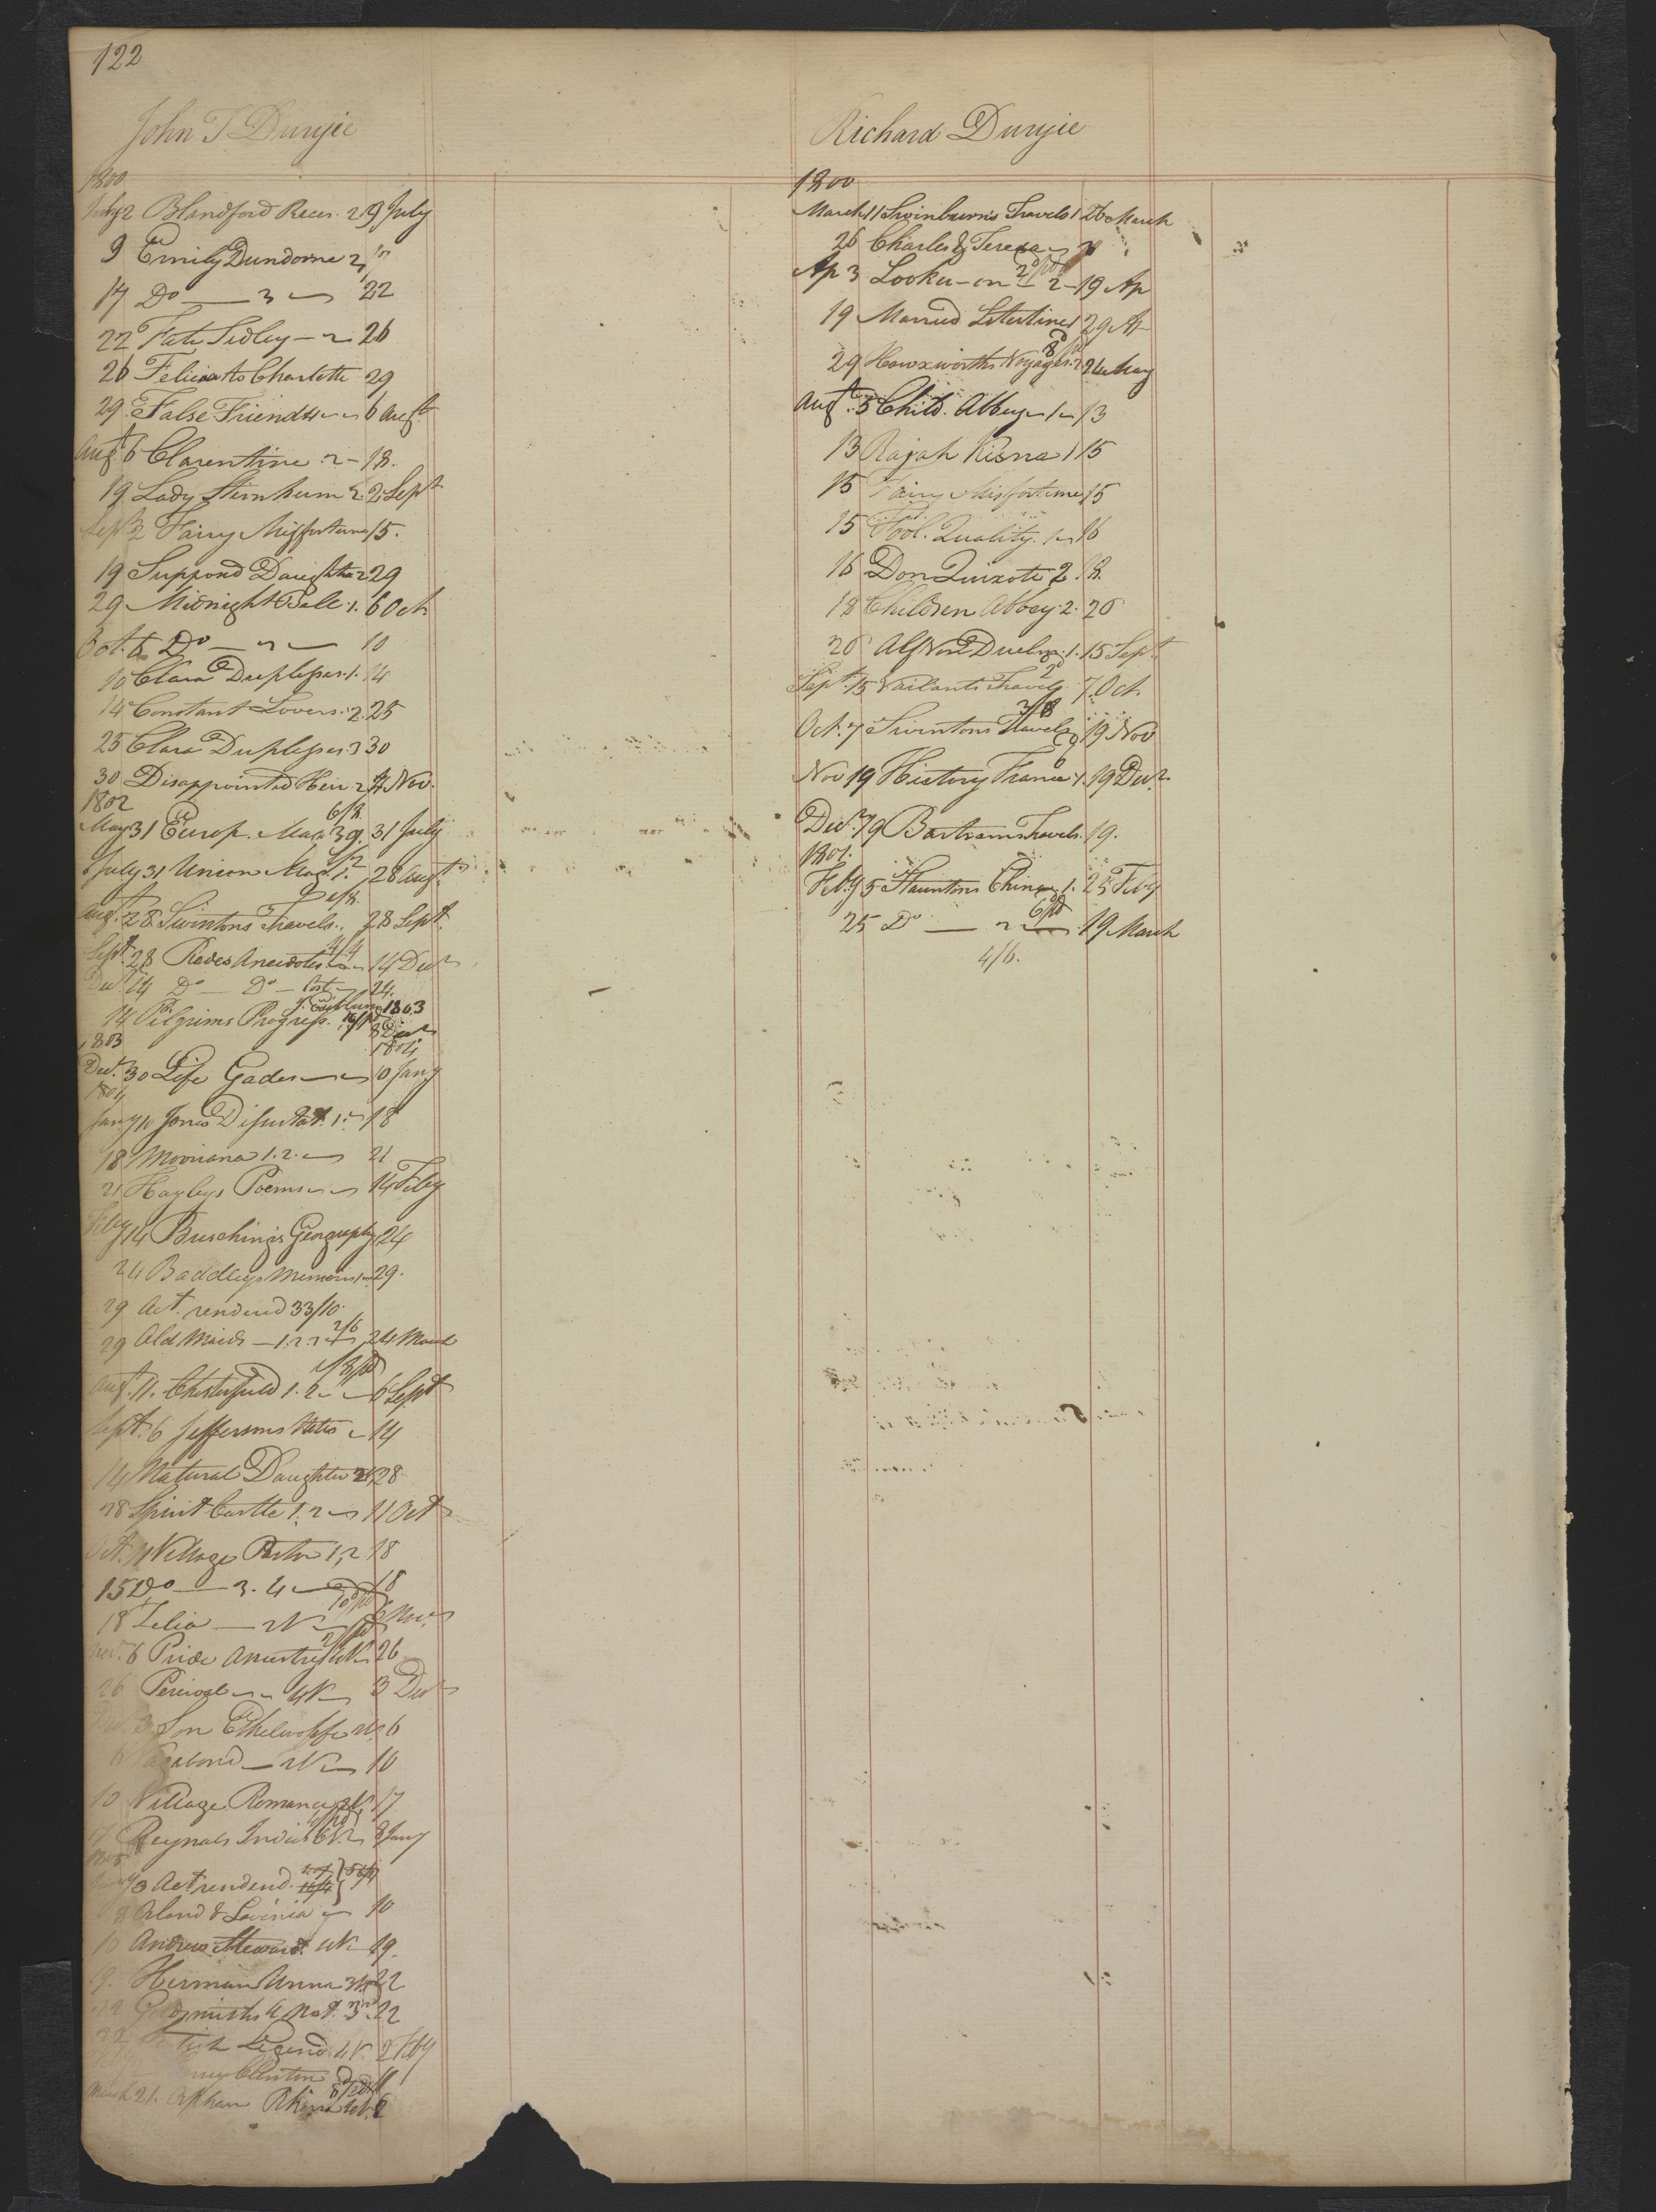 122
John T Duryie
1800
July 2 Blandford Races. 2. 9 July
9 Emily Dundorne 2
17 Do — 3 22
22 Kate Sidley — 2 26
26 Felicia to Charlotte 29
29 False Friends 6 Augt
Augt 6 Clarentine 2 — 18.
19 Lady Sternheim 2. 2 Sept
Sept 2 Fairy Misfortune 15.
19 Supposd Daughter 2 29
29 Midnight Bell 1. 6 Oct
Oct. 6 Do — 2 — 10
10 Clara Duplesses. 1. 14
14 Constant Lovers. 2. 25
25 Clara Duplesses 3 30
30 Disappointed Heir 2 4 Nov.
1802
6/8.
May 31 Europ. Mag 39. 31 July
July 31 Union Mag. 1. 28 Augt
Augt. 28 Swintons Travels. 28 Sept.
4/4
Sept. 28 Redes Anecdotes 14 Decr
Decr 14 Do — Do — 24.
1803
14 Pilgrims Progress. 8 Decr
1803 1804
Decr. 30 Life Gades 10 Jany
1804
Jany 10 Jones Disputat. 1. 18
18 Mooriana 1. 2. 21
21 Hayleys Poems 14 Feby
Feby 14 Buschings Geography 24
24 Baddleys Memoirs 29.
29 Act. rendered 33/10.
2/6
29 Old Maids — 1. 2. 24 March
Augt. 11. Chesterfield 1. 2 6 Sept
Sept. 6 Jeffersons Notes 14
14 Natural Daughter 2V. 28
28 Spirit Castle 1. 2 11 Oct
Oct. 11 Village Pastor 1, 2 18
15 Do — 3. 4 18
18 Zelia — 2V 6 Nov.
Nov. 6 Pride Ancestry 4V 26
26 Percival 4V 3 Decr
Decr. 3 Son Ethelwolfe 6
6 Vagabond — 2V 10
10 Village Romance 2V. 17
17 Reynals Indies 6V. 8 Jany
1805
Jany 3 Act rendend.
8 Orland & Lavinia 10
10 Andrew Steward 4V 19.
19. Herman & Unna 3V 22
22 Goldsmiths A Nat. 3. 22
22 Legend 4V. 2 Feby
Clinton
March 21. Orphan Rhine
Richard Duryie
1800
March 11 Swinburn's Travels 1 26 March
26 Charles & Teresa
Ap 3 Looker-on — 2 — 19 Ap
19 Married Libertine 1 29 Ap
29 Hawxworths Voyages. 2 24 May
Augt. 5 Child. Abbey 1 13
13 Rajah Kisna 1 15
15 Fairy Misfortune 15
15 Fool. Quality. 1 16
16 Don Quixote 2. 18.
18 Children Abbey. 2. 26
26 Alf Von Duelm. 1. 15 Sept
Sept. 15 Vailants Travels. 7 Oct
3/8
Oct. 7 Swintons Travels 19 Nov
Nov 19 History France 1. 19 Decr.
Decr. 19 Bartrams Travels. 19.
1801.
Feby 5 Stauntons China 1. 25 Feby
25 Do — 2 19 March
4/6.